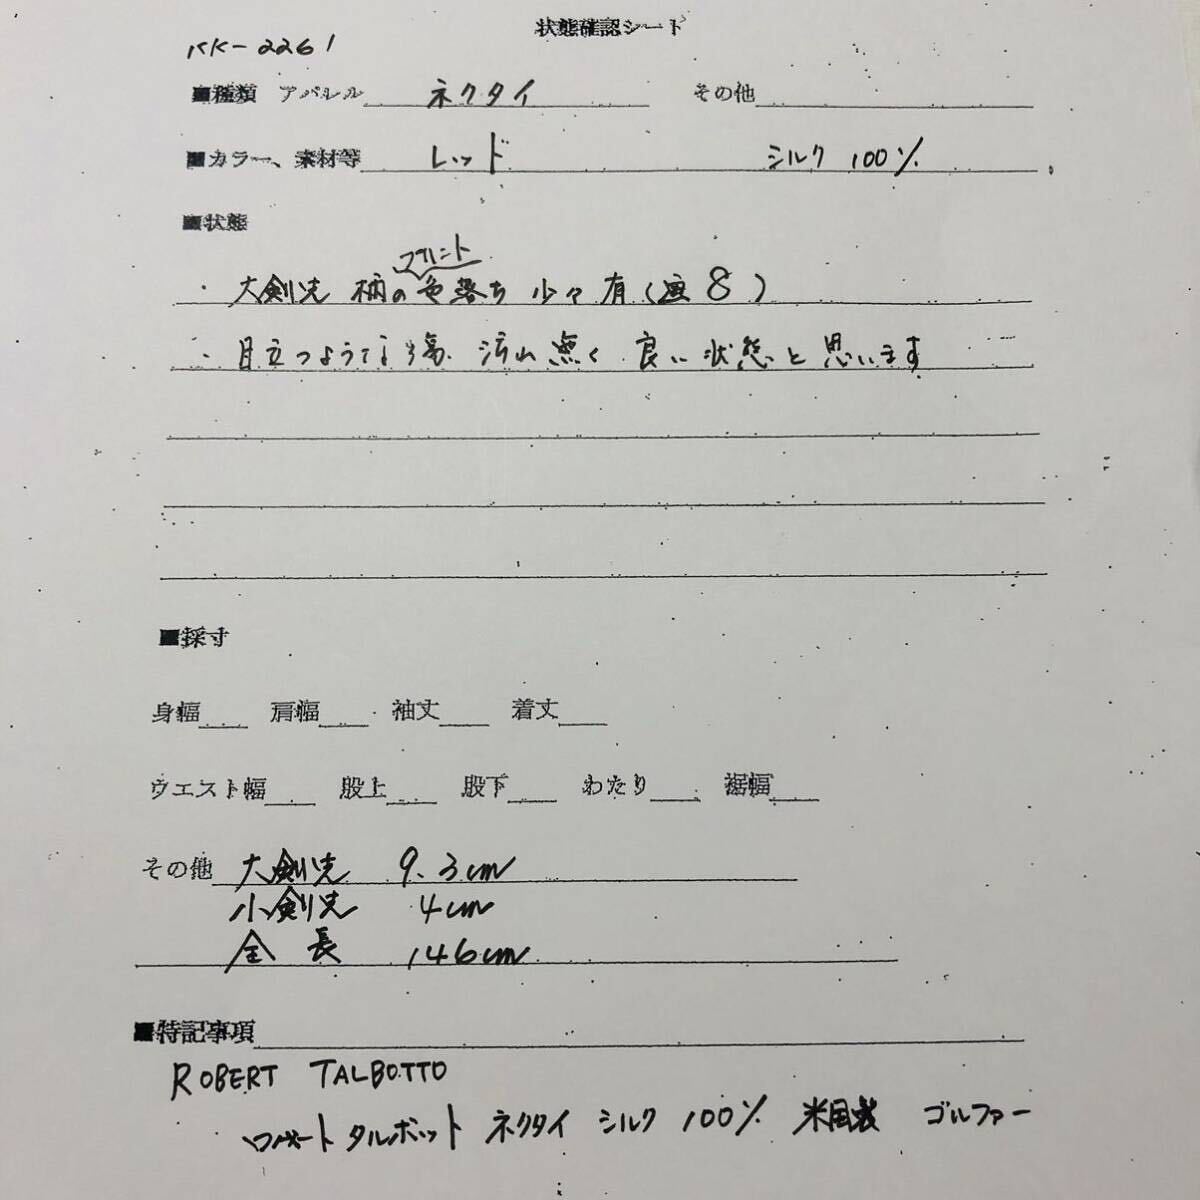 状態確認シート
KK-2261
■種類 アパレル ネクタイ その他
■カラー、素材等 レッド シルク 100%
■状態
プリント
・大剣先 柄の色落ち 少々有(画8)
・目立つようなキズ、汚れ無く 良い状態と思います
■採寸
身幅 肩幅 袖丈 着丈
ウエスト幅 股上 股下 わたり 裾幅
その他 大剣先 9.3cm
小剣先 4cm
全長 146cm
■特記事項
ROBERT TALBOTTO
ロバート タルボット ネクタイ シルク 100% 米国製 ゴルファー